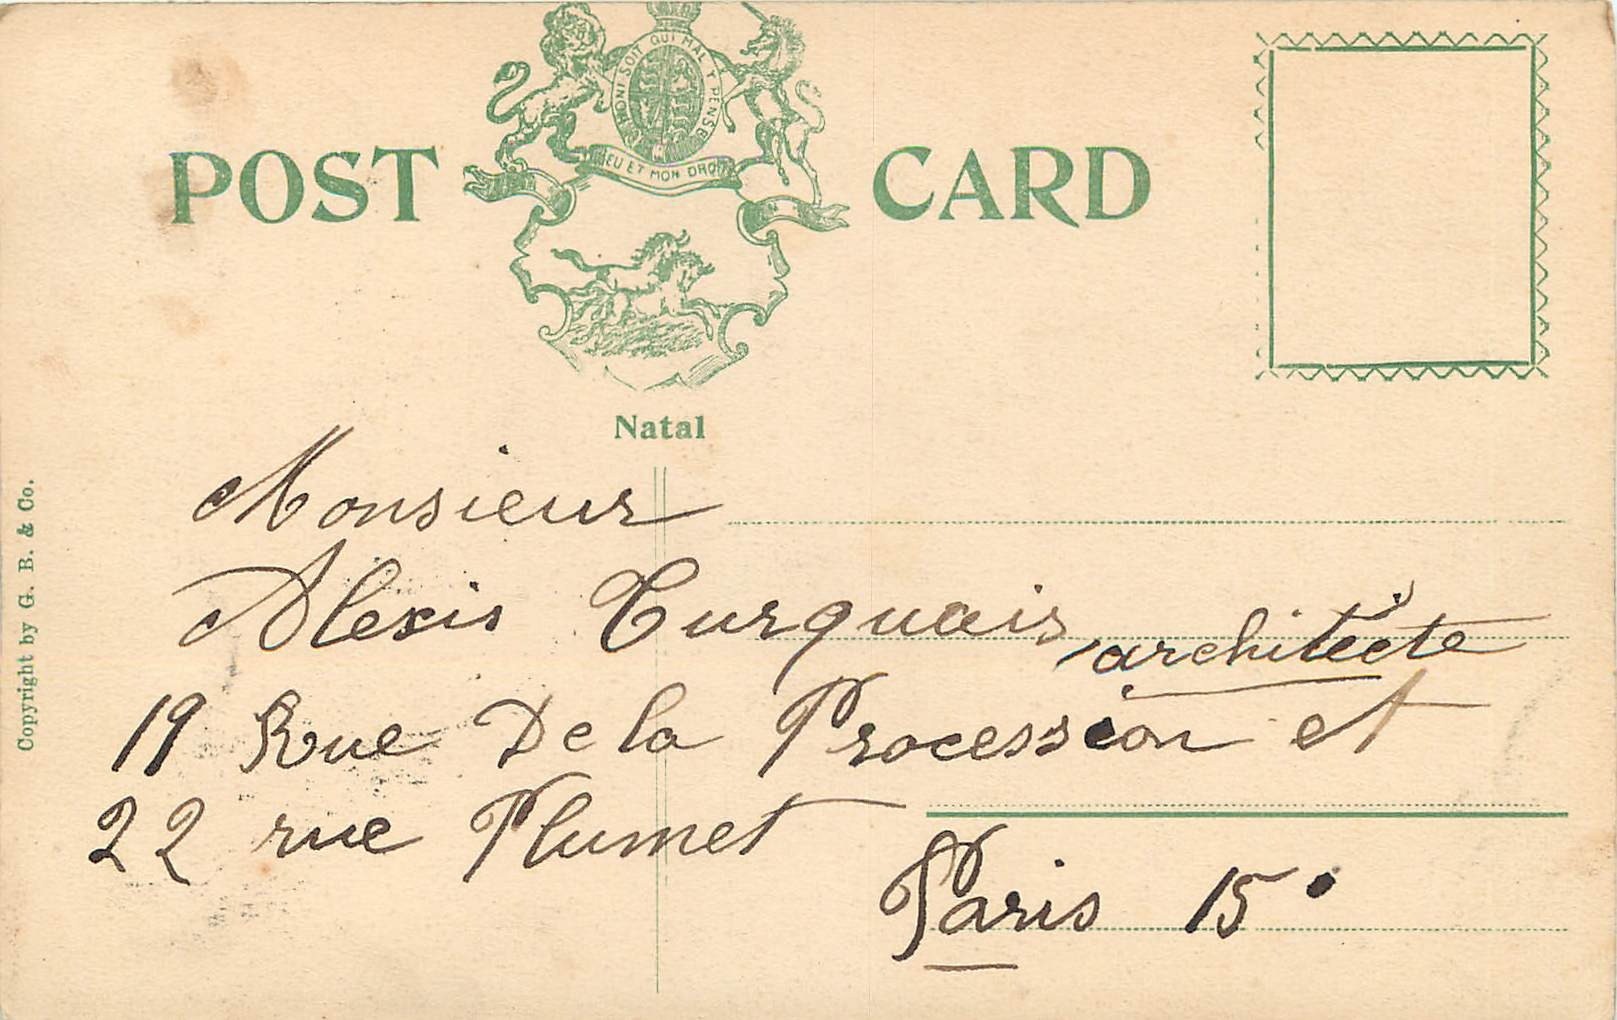 POST CARD
HONI SOIT QUI MAL Y PENSE
DIEU ET MON DROIT
Natal
Copyright by G. B. & Co.
Monsieur
Alexis Turquais, architecte
19 Rue De la Procession et
22 rue Plumet
Paris 15e